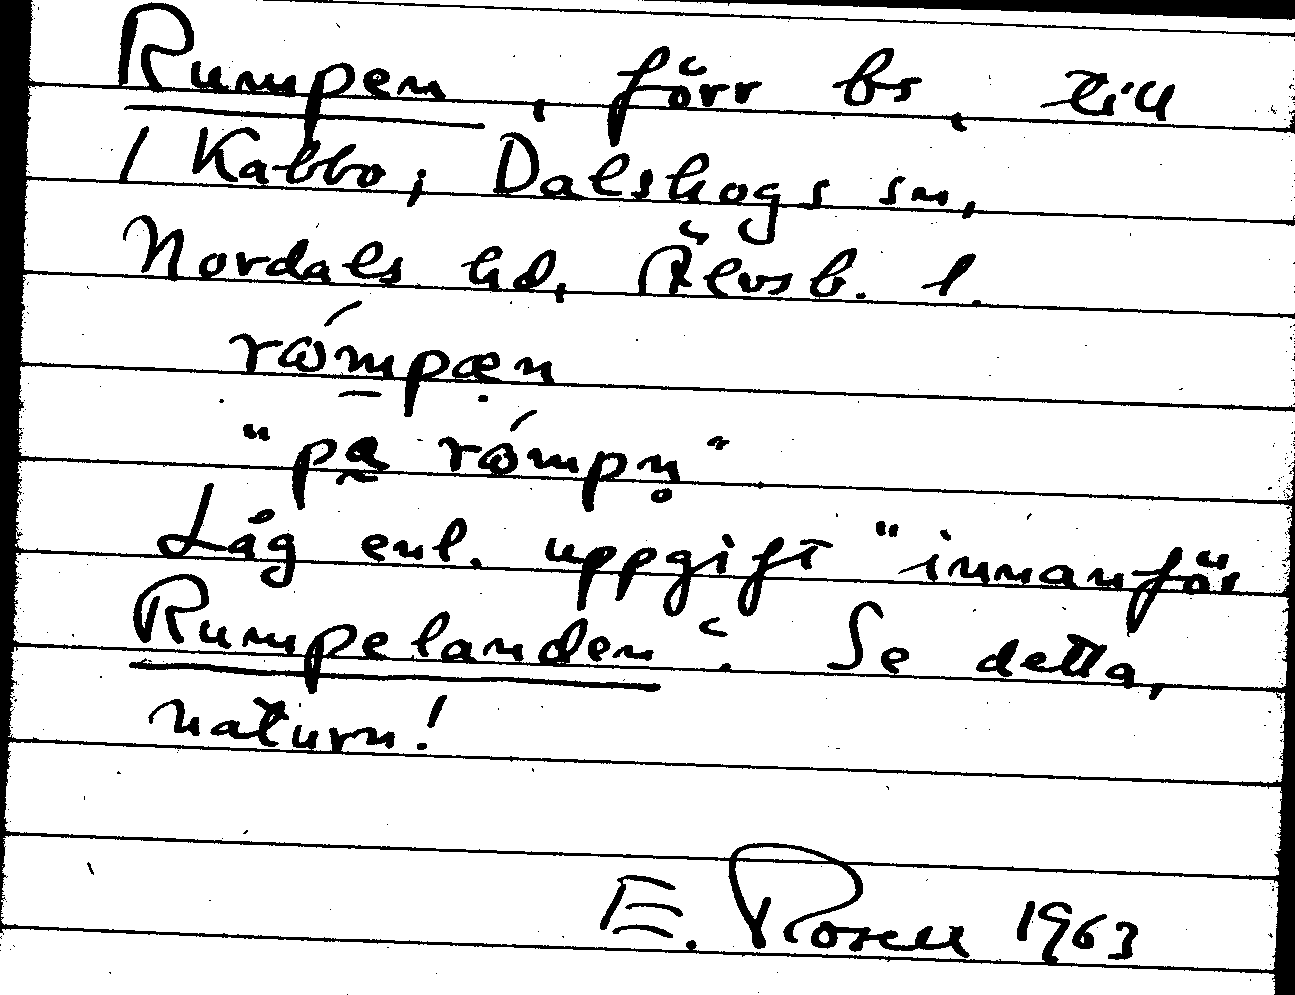 Rumpen, förr bs, till
1 Kabbo; Dalskogs sn,
Nordals hd, Älvsb. l.
rώmpæn
"pa rώmpn̥"
Låg enl. uppgift "innanför
Rumpelanden". Se detta,
naturn!
E. Rosell 1963